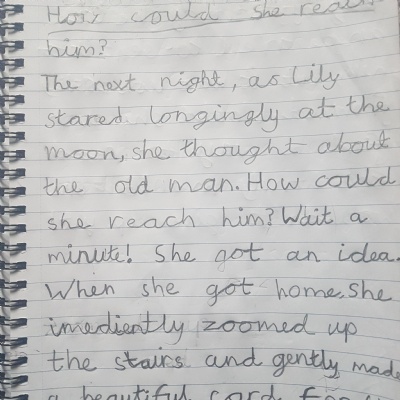 How could she reach
him?
The next night, as Lily
stared longingly at the
moon, she thought about
the old man. How could
she reach him? Wait a
minute! She got an idea.
When she got home, she
imediently zoomed up
the stairs and gently made
a beautiful card for